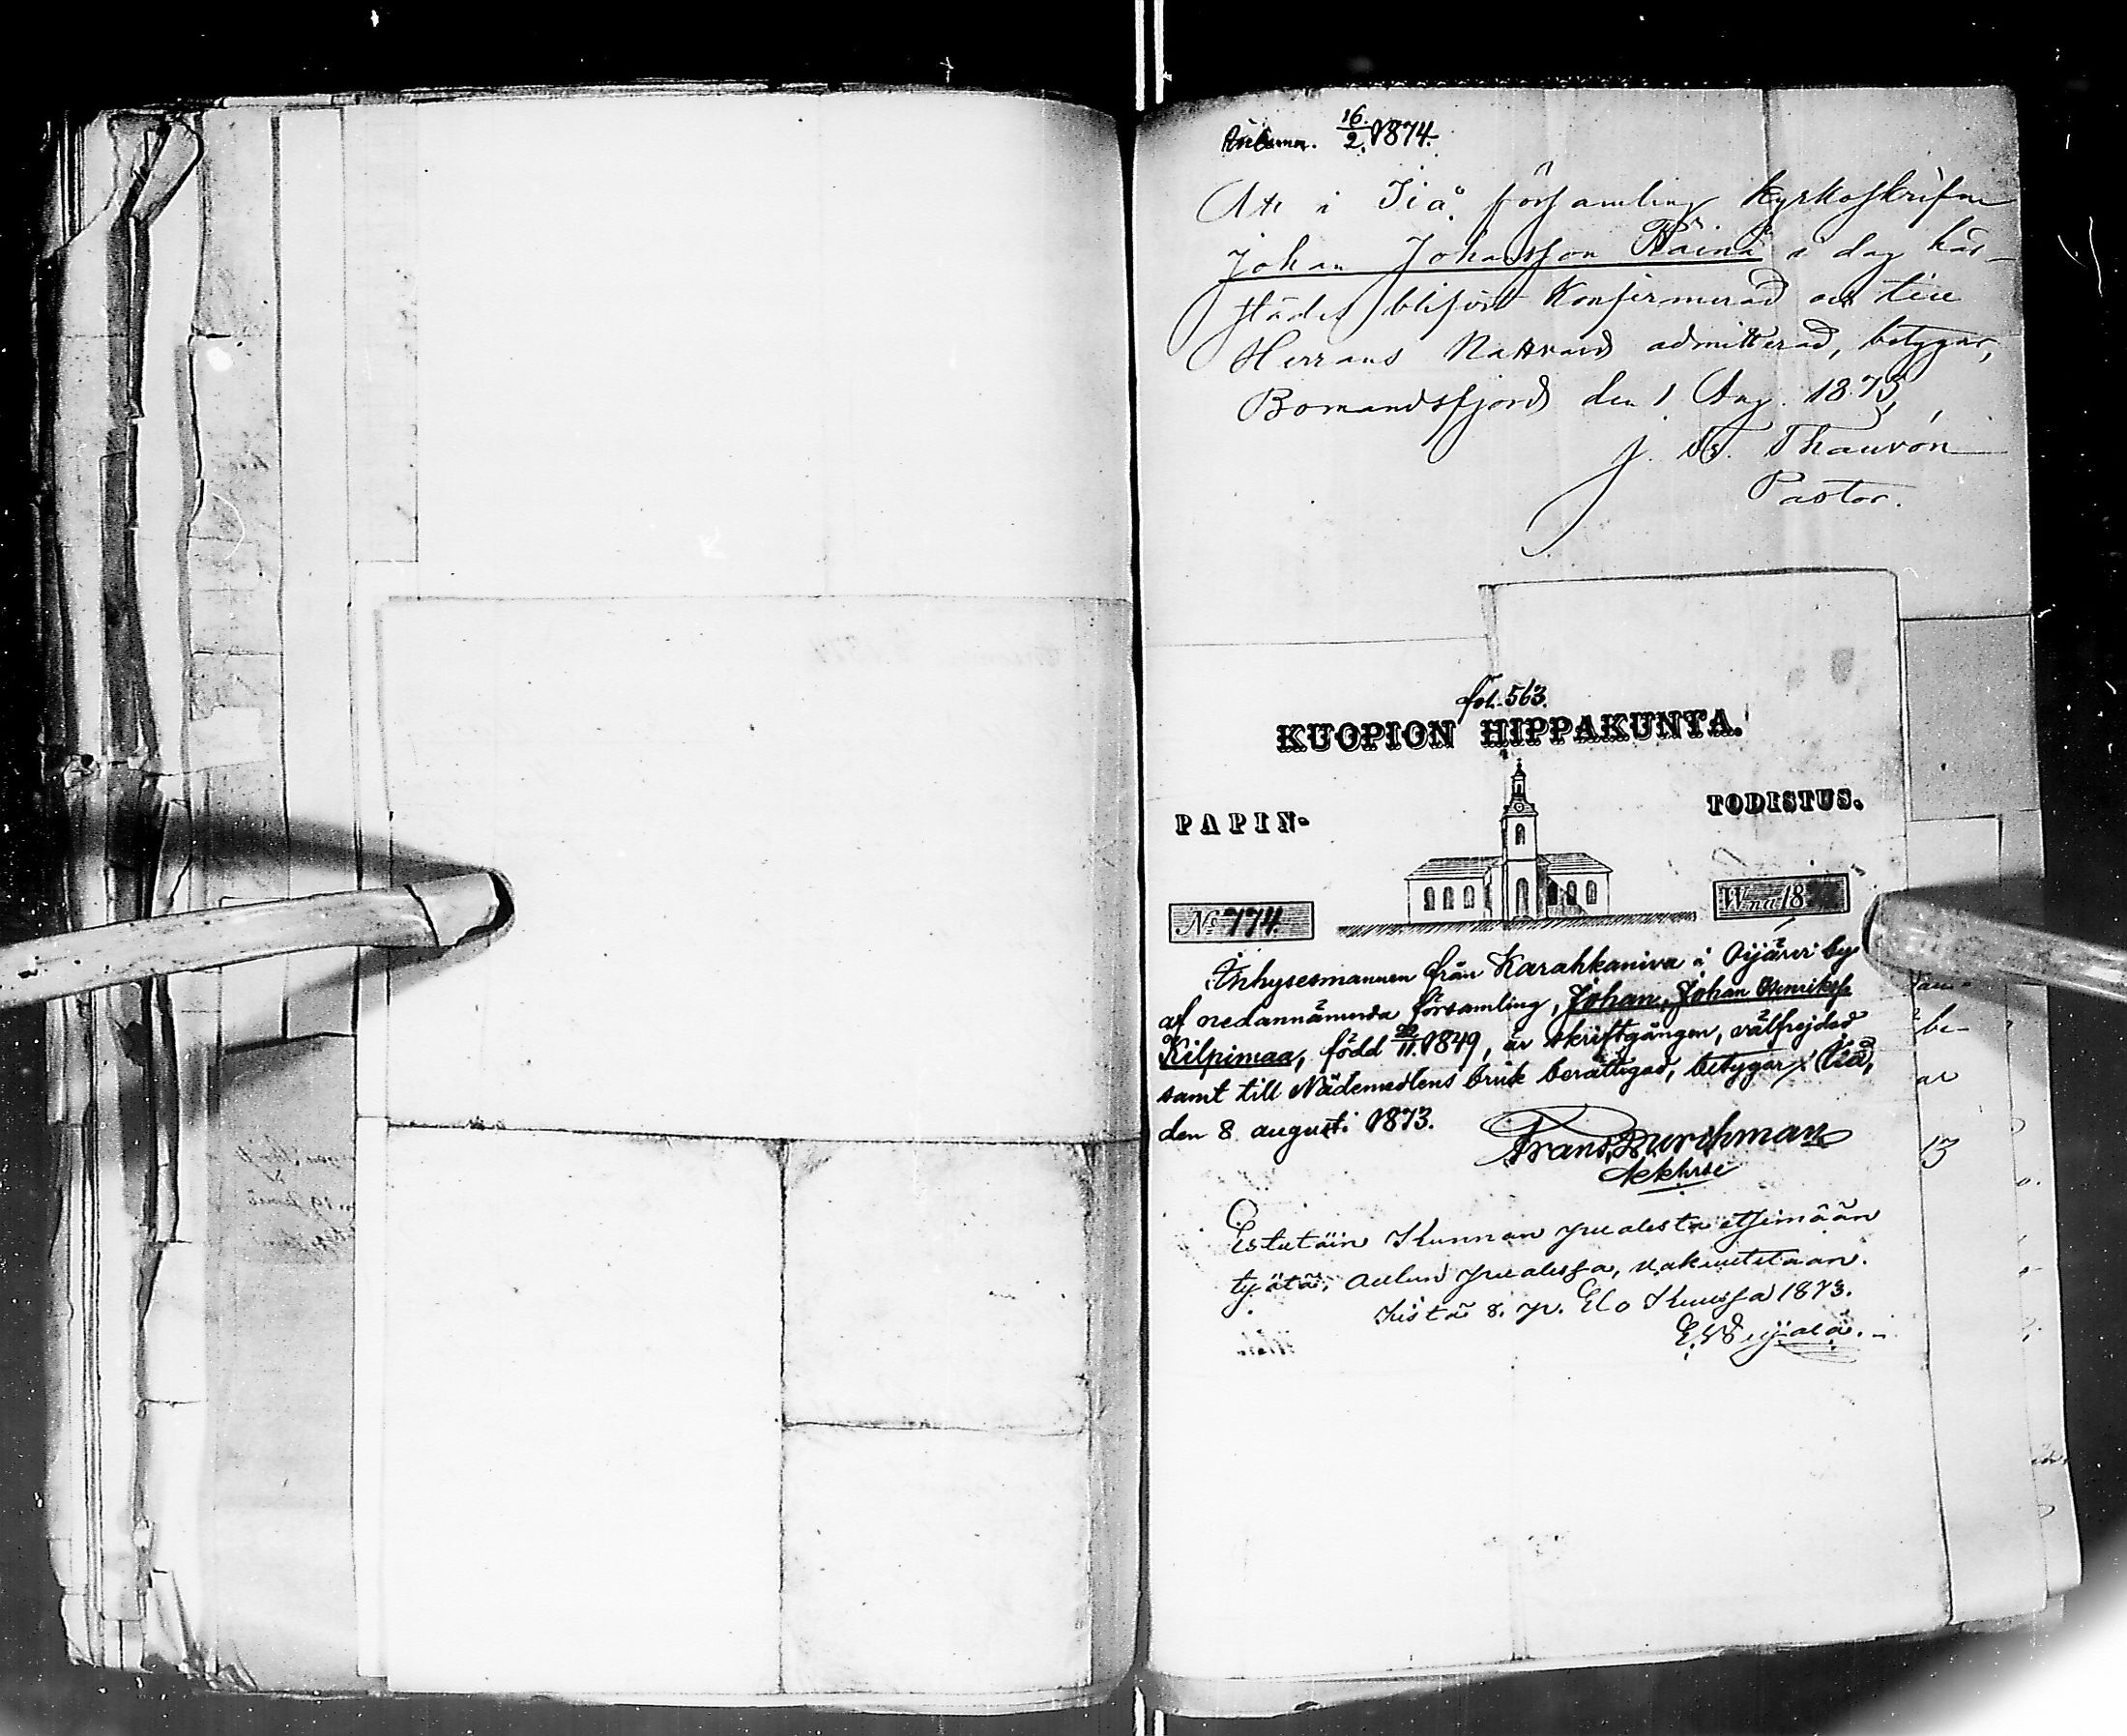 16/2 1874.
Att i Iiå församling kyrkoskrifne
Johan Johansson Räinä i dag här-
städes blifvit Konfirmerad och till
Herrans Nattvard admitterad, betygar,
Bomandsfjord den 1 Aug. 1873,
J. Fr. Thauvón
Pastor.
fol. 563.
KUOPION HIPPAKUNTA.
PAPIN- TODISTUS.
No 774. Wna 18
Inhysesmannen från Karahkaniva i Oijärvi by
af nedannämnda församling, Johan, Johan Henrikss.
Kilpimaa, född 22/11 1849, är skriftgången, välfrejdad
samt till Nådemedlens bruk berättigad, betygar; (Iiå,
den 8 augusti 1873.
Frans Burchman
Estetäin Kunnan puolesta etsimään
työtä, Oulun puolessa, vakuutetaan.
Iistä 8. p. Elo Kuussa 1873.